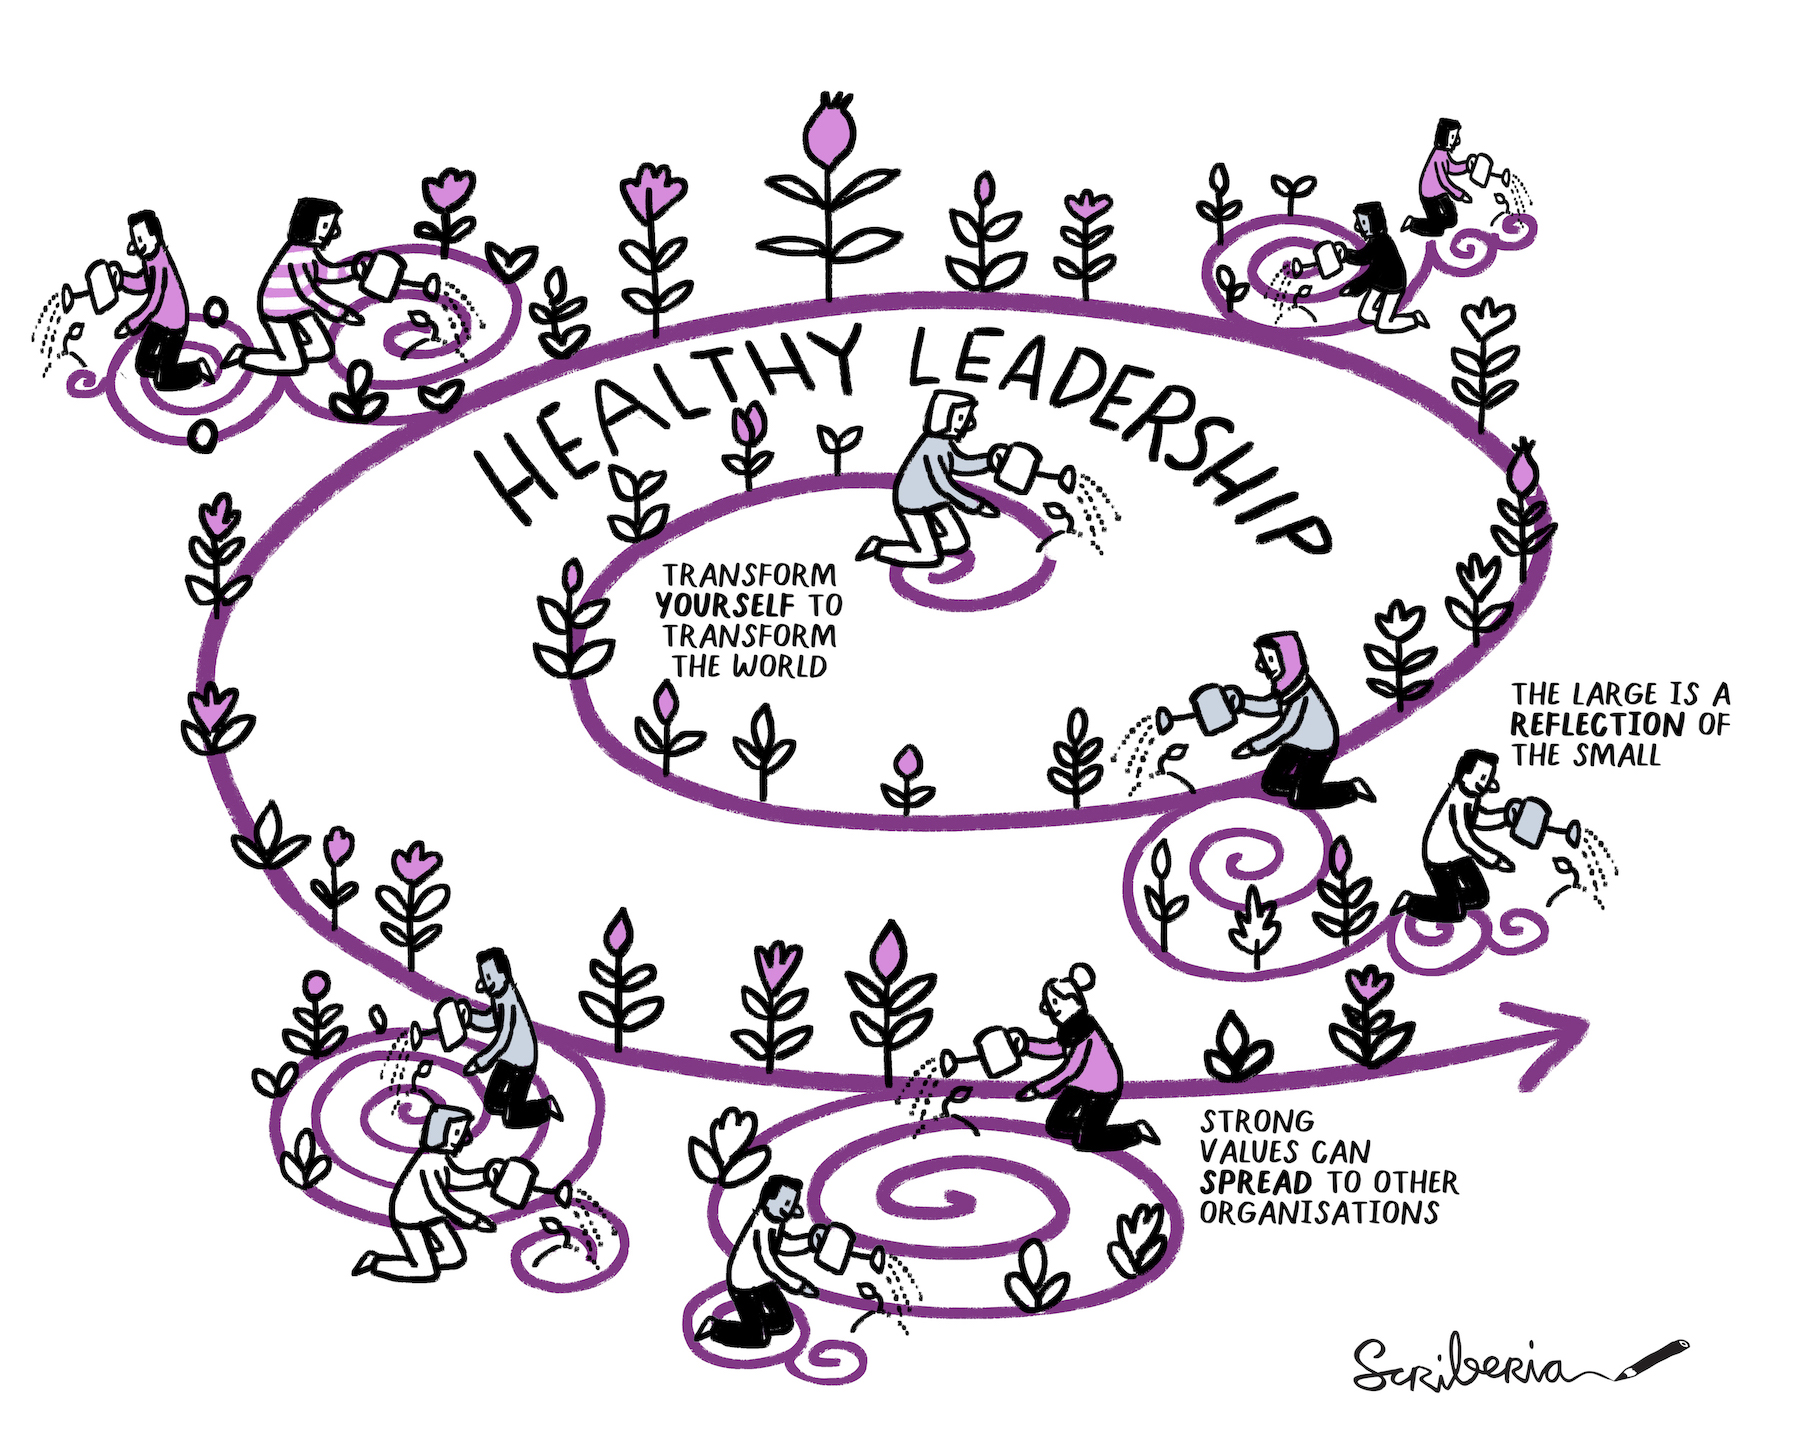 HEALTHY LEADERSHIP
TRANSFORM
YOURSELF TO
TRANSFORM
THE WORLD
THE LARGE IS A
REFLECTION OF
THE SMALL
STRONG
VALUES CAN
SPREAD TO OTHER
ORGANISATIONS
Scriberia